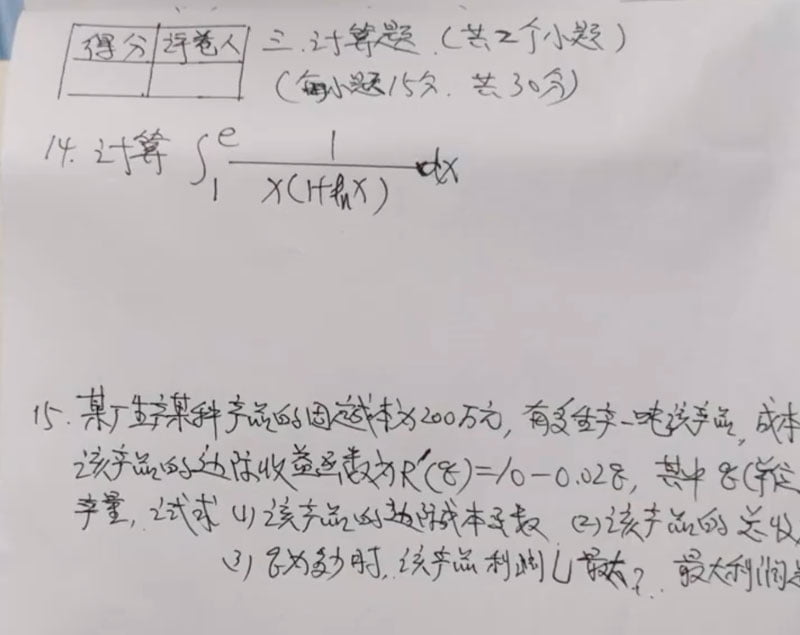 得分 评卷人 三.计算题.(共2个小题)
(每小题15分.共30分)
14.计算 ∫₁ᵉ 1/(x(1+ln x)) dx
15.某厂生产某种产品的固定成本为200万元,有多生产一吨该产品,成本
该产品的边际收益函数为R′(q)=10-0.02q,其中q(单位
产量,试求(1)该产品的边际成本函数 (2)该产品的总收
(3)q为多少时,该产品利润L最大?.最大利润是